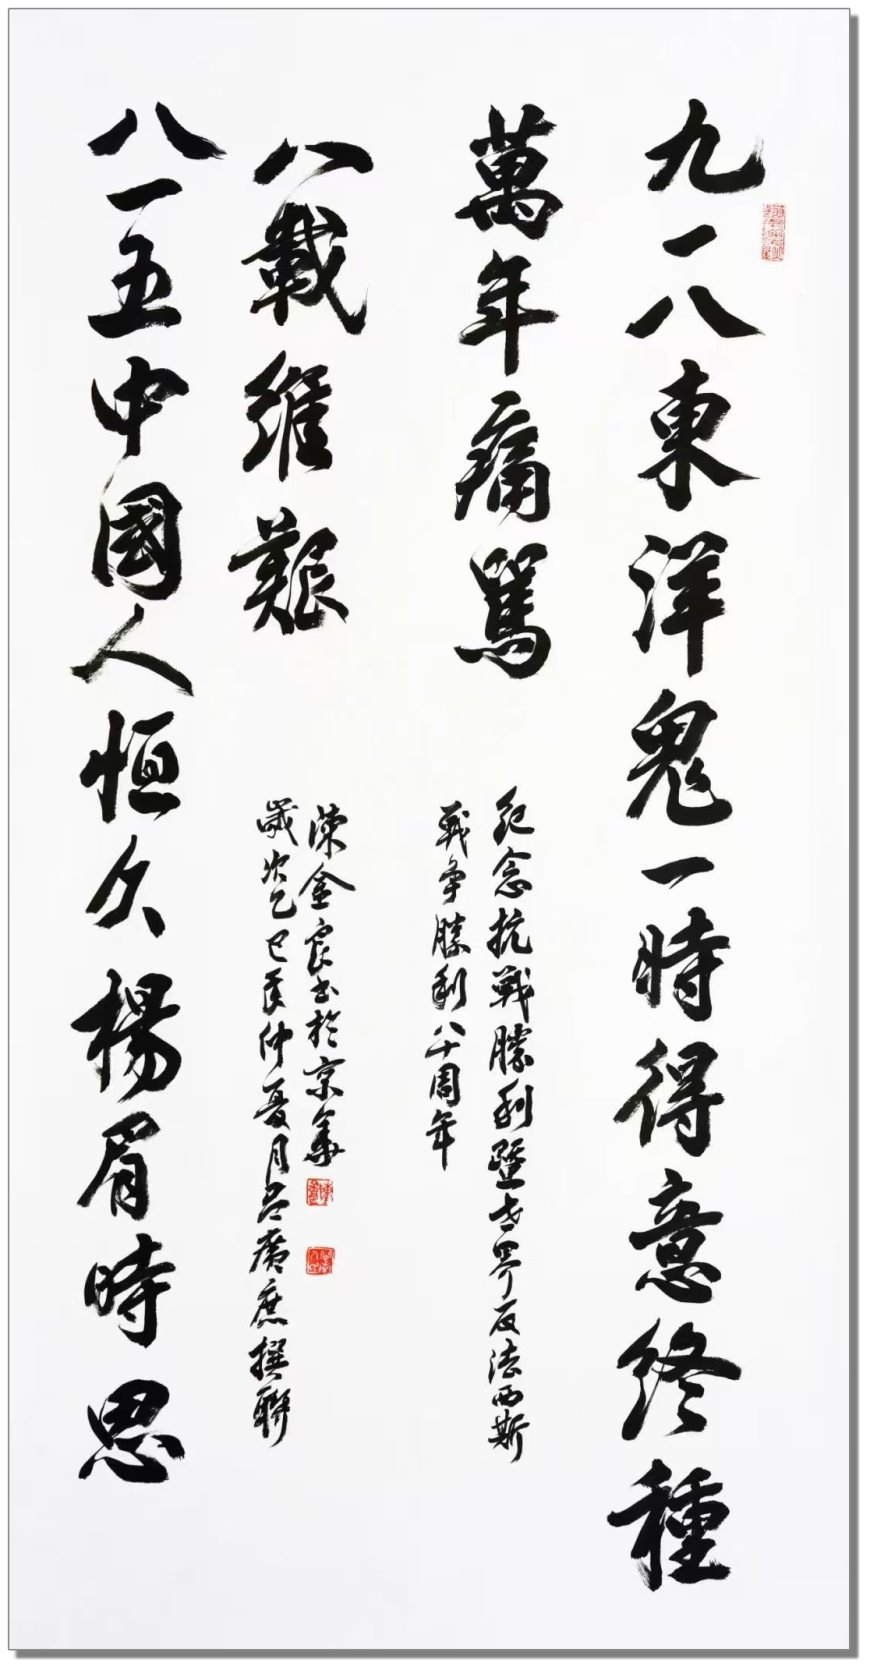 九一八東洋鬼一時得意終種
萬年痛罵
紀念抗戰勝利暨世界反法西斯
戰爭勝利八十周年
八一五中國人恒久楊眉時思
八載維艱
歲次乙巳年仲夏月吕廣庶撰聯
陳金良書於京華